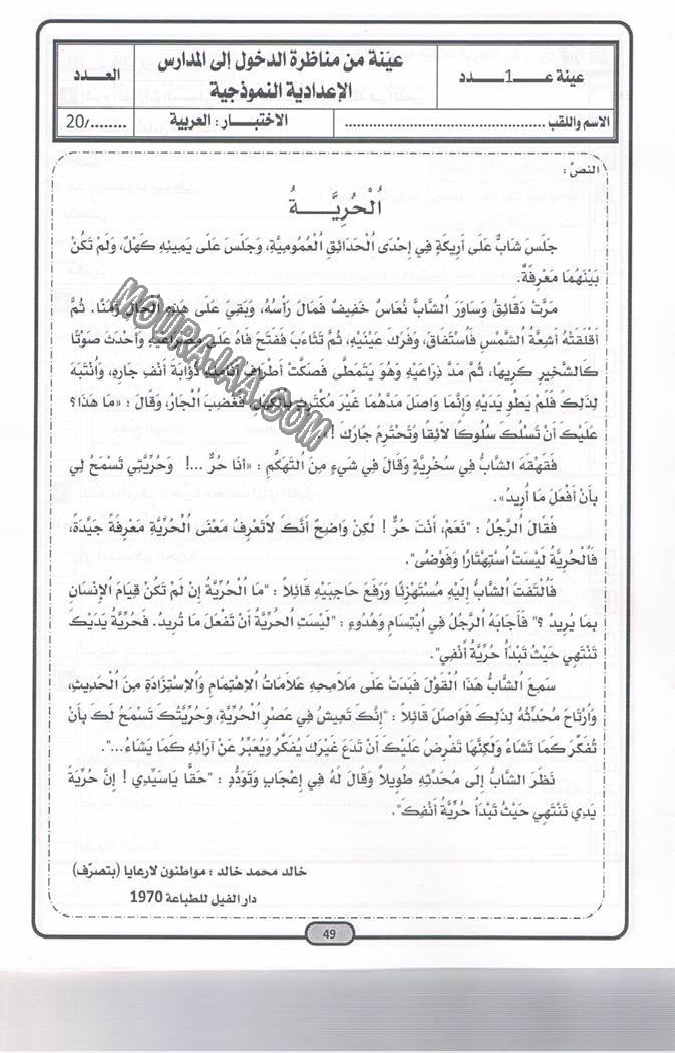 عيّنة عـ1ـدد
عيّنة من مناظرة الدخول إلى المدارس
الإعدادية النموذجية
العـــدد
الاسم واللقب ........................................
الاختبـــار : العربية
20/........
النصّ :
اَلْحُرِيَّـــةُ
جَلَسَ شَابٌّ عَلَى أَرِيكَةٍ فِي إِحْدَى الْحَدَائِقِ الْعُمُومِيَّةِ، وَجَلَسَ عَلَى يَمِينِهِ كَهْلٌ، وَلَمْ تَكُنْ
بَيْنَهُمَا مَعْرِفَةٌ.
مَرَّتْ دَقَائِقُ وَسَاوَرَ الشَّابَّ نُعَاسٌ خَفِيفٌ فَمَالَ رَأْسُهُ، وَبَقِيَ عَلَى هَذِهِ الْحَالِ زَمَنًا. ثُمَّ
أَقْلَقَتْهُ أَشِعَّةُ الشَّمْسِ فَاسْتَفَاقَ، وَفَرَكَ عَيْنَيْهِ، ثُمَّ تَثَاءَبَ فَفَتَحَ فَاهُ عَلَى مِصْرَاعَيْهِ وَأَحْدَثَ صَوْتًا
كَالشَّخِيرِ كَرِيهًا، ثُمَّ مَدَّ ذِرَاعَيْهِ وَهُوَ يَتَمَطَّى فَصَكَّتْ أَطْرَافُ أَنَامِلِهِ ذُؤَابَةَ أَنْفِ جَارِهِ، وَانْتَبَهَ
لِذَلِكَ فَلَمْ يَطْوِ يَدَيْهِ وَإِنَّمَا وَاصَلَ مَدَّهُمَا غَيْرَ مُكْتَرِثٍ بِالْكَهْلِ، فَغَضِبَ الْجَارُ، وَقَالَ : «مَا هَذَا؟
عَلَيْكَ أَنْ تَسْلُكَ سُلُوكًا لاَئِقًا وَتَحْتَرِمَ جَارَكَ !».
فَقَهْقَهَ الشَّابُّ فِي سُخْرِيَّةٍ وَقَالَ فِي شَيْءٍ مِنَ التَّهَكُّمِ : «أَنَا حُرٌّ ...! وَحُرِّيَّتِي تَسْمَحُ لِي
بِأَنْ أَفْعَلَ مَا أُرِيدُ».
فَقَالَ الرَّجُلُ : "نَعَمْ، أَنْتَ حُرٌّ ! لَكِنْ وَاضِحٌ أَنَّكَ لاَتَعْرِفُ مَعْنَى الْحُرِّيَّةِ مَعْرِفَةً جَيِّدَةً،
فَالْحُرِيَّةُ لَيْسَتْ اسْتِهْتَارًا وَفَوْضَى".
فَالْتَفَتَ الشَّابُّ إِلَيْهِ مُسْتَهْزِئًا وَرَفَعَ حَاجِبَيْهِ قَائِلاً : "مَا الْحُرِّيَّةُ إِنْ لَمْ تَكُنْ قِيَامَ الإِنْسَانِ
بِمَا يُرِيدُ ؟" فَأَجَابَهُ الرَّجُلُ فِي ابْتِسَامٍ وَهُدُوءٍ : "لَيْسَتِ الْحُرِيَّةُ أَنْ تَفْعَلَ مَا تُرِيدُ. فَحُرِّيَّةُ يَدَيْكَ
تَنْتَهِي حَيْثُ تَبْدَأُ حُرِّيَّةُ أَنْفِي".
سَمِعَ الشَّابُّ هَذَا الْقَوْلَ فَبَدَتْ عَلَى مَلاَمِحِهِ عَلاَمَاتُ الاِهْتِمَامِ وَالاِسْتِزَادَةِ مِنَ الْحَدِيثِ،
وَارْتَاحَ مُحَدِّثُهُ لِذَلِكَ فَوَاصَلَ قَائِلاً : "إِنَّكَ تَعِيشُ فِي عَصْرِ الْحُرِّيَّةِ، وَحُرِّيَّتُكَ تَسْمَحُ لَكَ بِأَنْ
تُفَكِّرَ كَمَا تَشَاءُ وَلَكِنَّهَا تَفْرِضُ عَلَيْكَ أَنْ تَدَعَ غَيْرَكَ يُفَكِّرُ وَيُعَبِّرُ عَنْ آرَائِهِ كَمَا يَشَاءُ...".
نَظَرَ الشَّابُّ إِلَى مُحَدِّثِهِ طَوِيلاً وَقَالَ لَهُ فِي إِعْجَابٍ وَتَوَدُّدٍ : "حَقًّا يَاسَيِّدِي ! إِنَّ حُرِّيَّةَ
يَدِي تَنْتَهِي حَيْثُ تَبْدَأُ حُرِّيَّةُ أَنْفِكَ".
خالد محمد خالد : مواطنون لارعايا (بتصرّف)
دار الفيل للطباعة 1970
49
MOURAJAA.COM